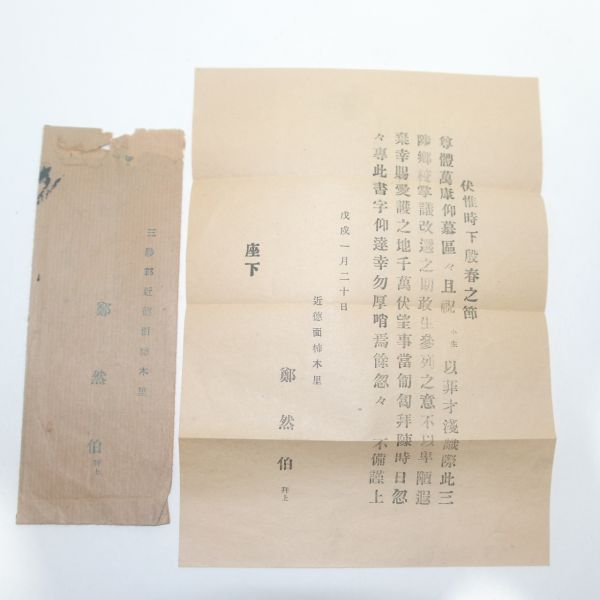 伏惟時下殷春之節
尊體萬康仰慕區々且祝 小生 以菲才淺識際此三
陟鄉校掌議改選之期敢生參列之意不以卑陋遐
棄幸賜愛護之地千萬伏望事當匍匐拜陳時日忽
々專此書字仰達幸勿厚誚焉餘忽々 不備謹上
戊戌一月二十日
近德面柿木里
鄭然伯 拜上
座下
三陟郡近德面柿木里
鄭然伯 拜上